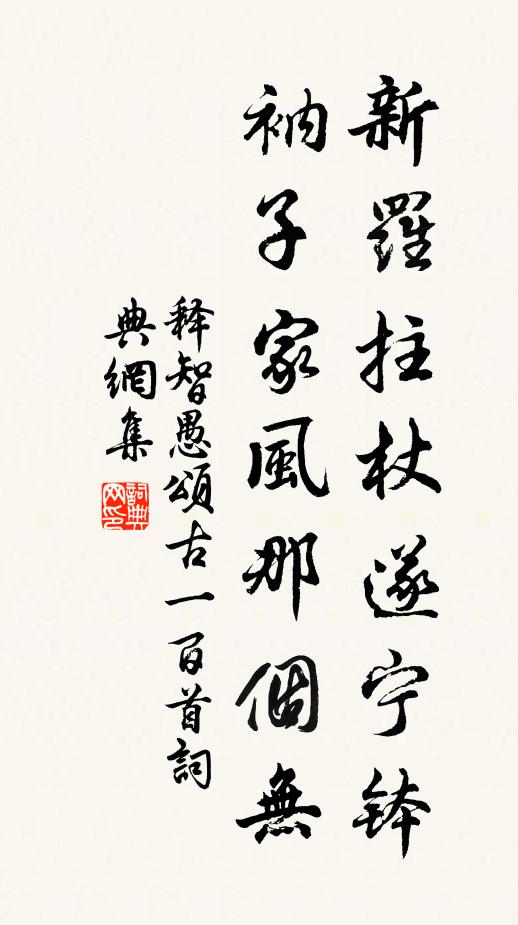 新羅拄杖遂宁钵
衲子家風那個無
释智愚頌古一百首詞
典網集
詞典网印